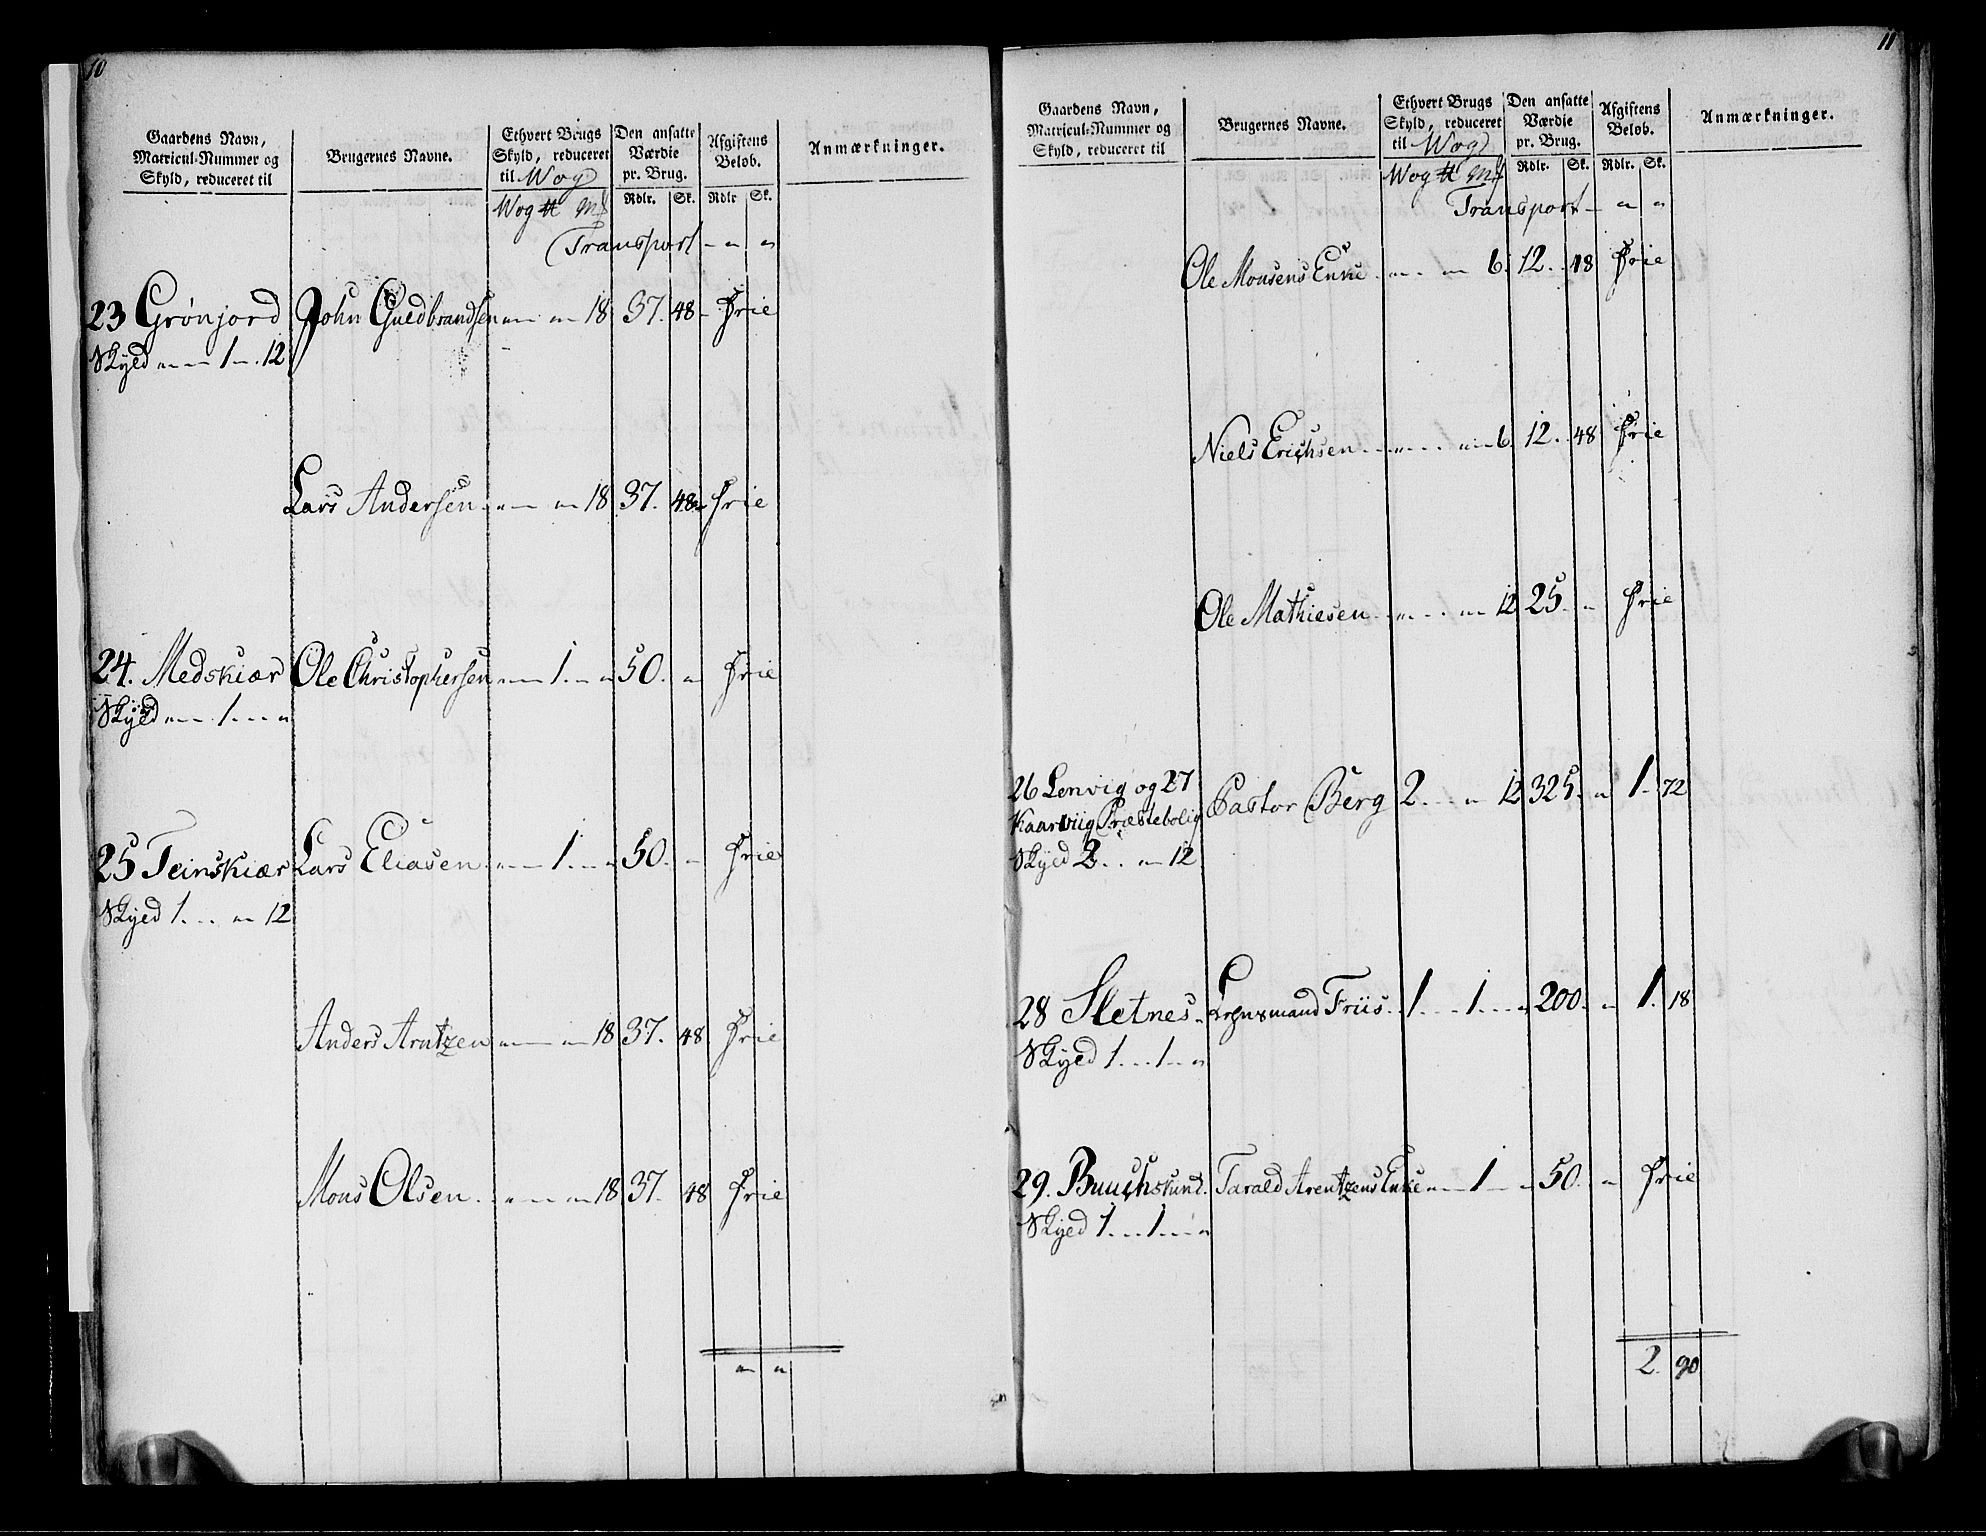 10
Gaardens Navn, Matricul-Nummer og Skyld, reduceret til | Brugernes Navne. | Ethvert Brugs Skyld, reduceret til Wog | Den ansatte Værdie pr. Brug. | Afgiftens Beløb. | Anmærkninger.
Wog ℔ Mk | Rdlr. | Sk. | Rdlr | Sk.
Transport - " "
23 Grønjord John Guldbrandsen " " 18 37. 48 - Frie
Skyld " 1 - 12
Lars Andersen " " 18 37. 48 - Frie
24. Medskiær Ole Christophersen " 1. " 50. " Frie
Skyld " 1. "
25 Teinskiær Lars Eliasen " 1. " 50. " Frie
Skyld 1. " 12
Anders Arntzen " " 18 37. 48 Frie
Mons Olsen " " 18 37. 48 Frie
" "
11
Gaardens Navn, Matricul-Nummer og Skyld, reduceret til | Brugernes Navne. | Ethvert Brugs Skyld, reduceret til Wog | Den ansatte Værdie pr. Brug. | Afgiftens Beløb. | Anmærkninger.
Wog ℔ Mk | Rdlr. | Sk. | Rdlr. | Sk.
Transport - " "
Ole Monsens Enke " " 6. 12. 48 Frie
Niels Erichsen " " 6. 12. 48 Frie
Ole Mathiesen " " 12 25. " Frie
26 Lenvig og 27
Kaarviig Præstebolig Pastor Berg 2. " 12 325. " 1. 72
Skyld 2. " 12
28 Sletnes. Lensmand Friis. 1. 1. " 200. " 1. 18
Skyld 1. 1. "
29. Buuchskund. Tarald Arentzens Enke " 1 " 50. " Frie
Skyld 1. 1. "
2. 90